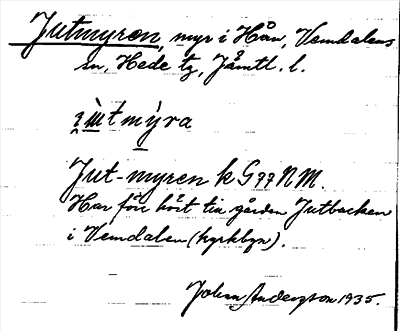 Jutmyren, myr i Hån, Vemdalens
sn, Hede tg, Jämtl. l.
mýra
Jut-myren k G77NM.
Har förr hört till gården Jutbacken
i Vemdalen (kyrkbyn).
Johan Anderzson 1935.